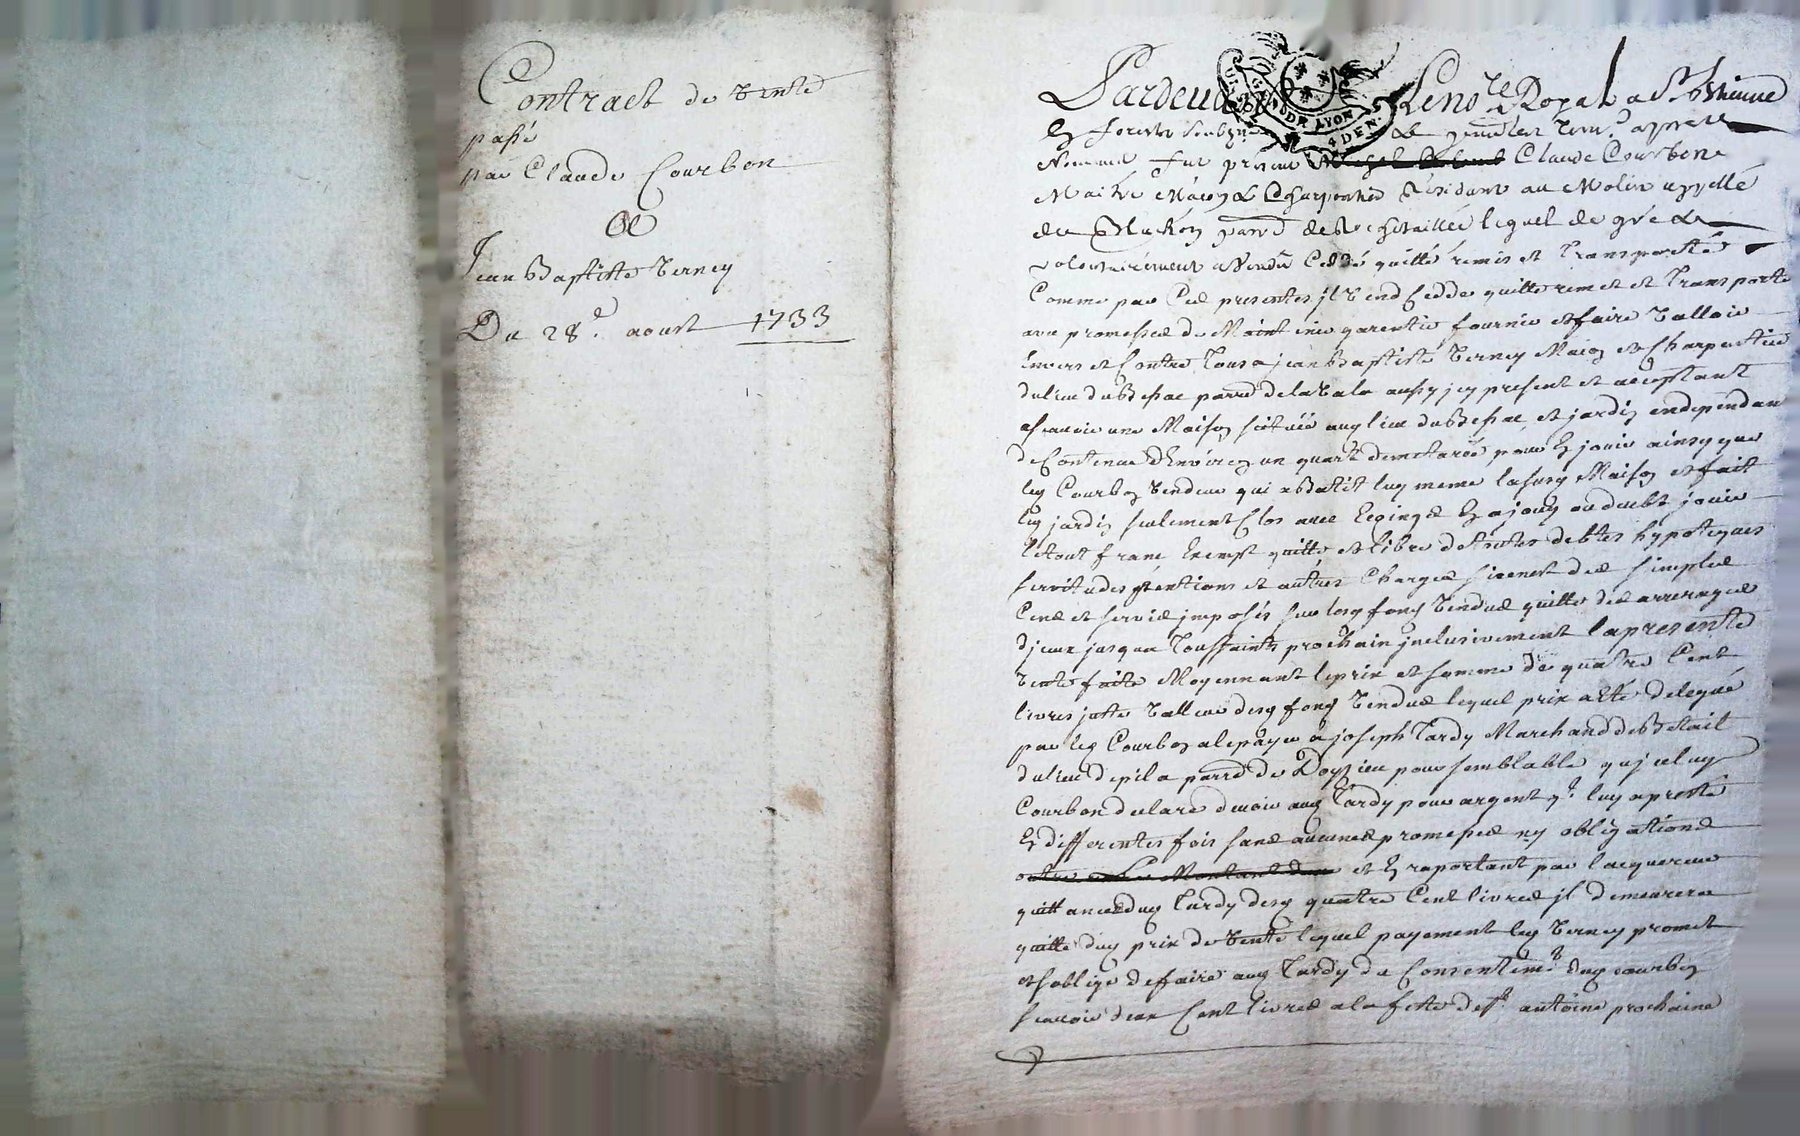 Contract de Vente
passé
par Claude Courbon
A
Jean Baptiste Verney
Du 28.e aoust 1733
Pardevant Le no.re Royal a St Etienne
GEN DE LYON
4 DEN.
En forests soubz.ne & temoins apres
Nommes fut present Claude Courbon
Maitre Maçon & Charpentier residant au Molin appellé
du parr.e de Rochetaillée lequel de gré &
volontairement a vendu Ceddé quitté remis et transporté
Comme par Ces presentes jl vend Cedde quitte remet et transporte
avec promesse de Maintenir garentir fournir et faire Valloir
Envers et Contre Tous a jean Baptiste Verney Maçon et Charpentier
du lieu du Bessac parr.e de la Vala aussy jcy present et acceptant
a scavoir une Maison scituée aud lieu du Bessac, et jardin endependant
de Contenue d'Environ un quart de metarée pour En jouir ainsy que
led Courbon Vendeur qui a Batit luy meme lasusd Maison et fait
led jardin seulement Clos avec En a jouy ou deubt jouir
le tout franc Exempt quitte et libre de toutes debtes hypoteques
servitudes pentions et autres Charges si ce nest des simples
Cens et servis jmposés sur lesd fonds Vendus quitte des arrerages
d'jceux jusqua Toussaints prochain jnclusivement la presente
Vente faite Moyennant le prix et somme de quatre Cent
livres juste Valleur desd fonds Vendus lequel prix a été delegué
par led Courbon a le payer a joseph Tardy Marchand de Betail
du lieu de pila parr.e de Doyzieu pour semblable qu'jceluy
Courbon declare devoir aud Tardy pour argent q.l luy a presté
En differentes fois sans aucunes promesses ny obligations
outre Le Montant d'une et En raportant par l'acquereur
quittances dud Tardy desd quatre Cent livres jl demeurera
quitte dud prix de Vente lequel payement led Verney promet
et soblige de faire aud Tardy du Consentem.t dud Courbon
scavoir deux Cent livres a la fette de St antoine prochaine